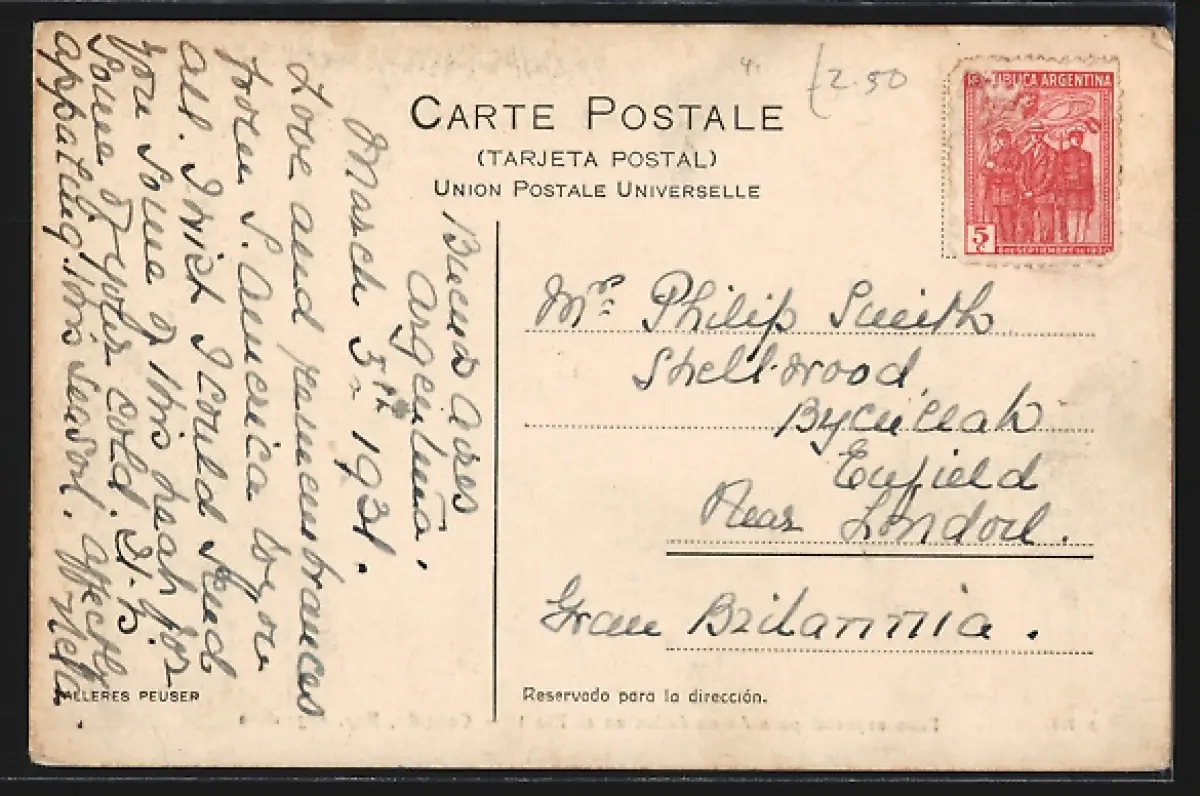 £2.50
CARTE POSTALE
(TARJETA POSTAL)
UNION POSTALE UNIVERSELLE
REPUBLICA ARGENTINA
5
C
6 DE SEPTIEMBRE DE 1930
Buenos Aires
Argentina.
March 5th 1931.
Love and remembrances
from S. America to you
all. I wish I could send
you some of this heat for
some of your cold. It is
appalling this season. Affectly
Mrs Philip Smith
Shellwood
Bycullah
Enfield
Near London.
Gran Britannia.
TALLERES PEUSER
Reservado para la dirección.